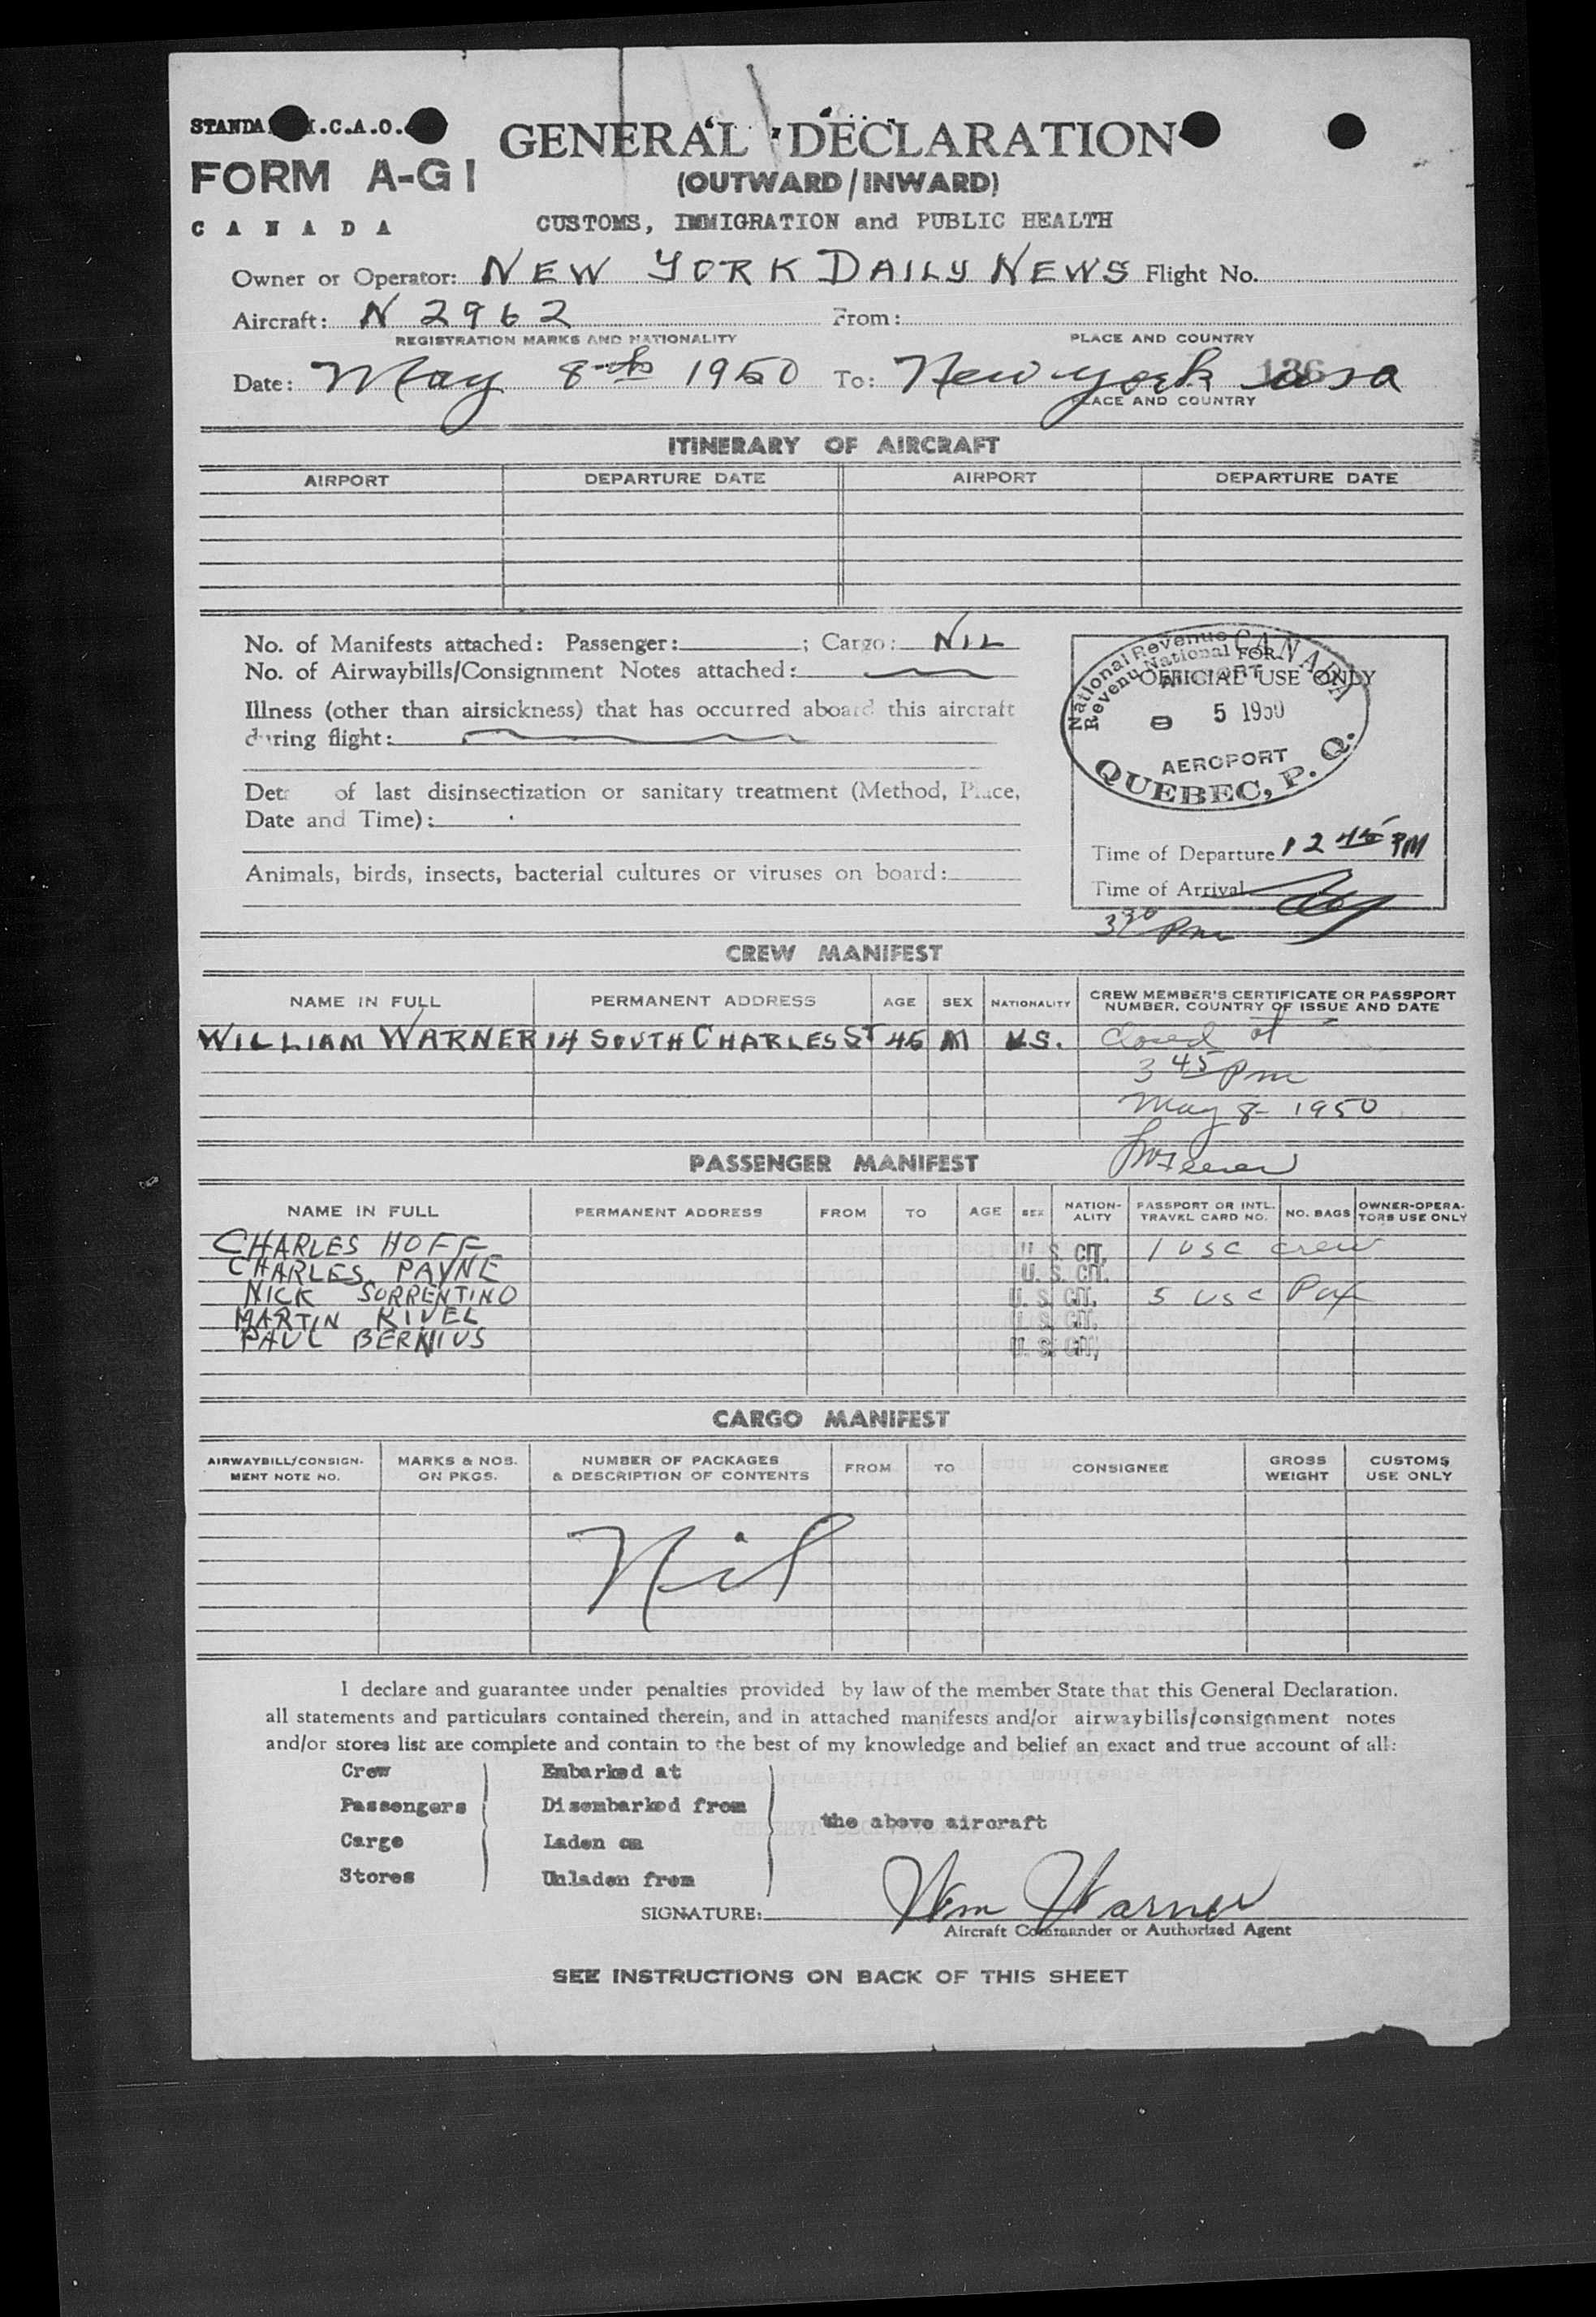 STANDA I.C.A.O.
GENERAL DECLARATION
FORM A-G1
(OUTWARD/INWARD)
CANADA
CUSTOMS, IMMIGRATION and PUBLIC HEALTH
Owner or Operator: NEW YORK DAILY NEWS Flight No.
Aircraft: N 2962 From:
REGISTRATION MARKS AND NATIONALITY PLACE AND COUNTRY
Date: May 8th 1950 To: New York usa
136
PLACE AND COUNTRY
ITINERARY OF AIRCRAFT
AIRPORT DEPARTURE DATE AIRPORT DEPARTURE DATE
No. of Manifests attached: Passenger: ; Cargo: NIL
No. of Airwaybills/Consignment Notes attached:
Illness (other than airsickness) that has occurred aboard this aircraft
during flight:
of last disinsectization or sanitary treatment (Method, Place,
Date and Time):
Animals, birds, insects, bacterial cultures or viruses on board:
FOR
OFFICIAL USE ONLY
National Revenue CANADA
Revenu National
AIRPORT
8 5 1950
AEROPORT
QUEBEC, P. Q.
Time of Departure 12 45 PM
Time of Arrival
3 30 Pm
CREW MANIFEST
NAME IN FULL PERMANENT ADDRESS AGE SEX NATIONALITY CREW MEMBER'S CERTIFICATE OR PASSPORT
NUMBER, COUNTRY OF ISSUE AND DATE
WILLIAM WARNER 14 SOUTH CHARLES ST 46 M U.S. Closed at
3 45 Pm
May 8 1950
PASSENGER MANIFEST
NAME IN FULL PERMANENT ADDRESS FROM TO AGE SEX NATION-
ALITY PASSPORT OR INTL.
TRAVEL CARD NO. NO. BAGS OWNER-OPERA-
TORS USE ONLY
CHARLES HOFF U. S. CIT. 1 USC crew
CHARLES PAYNE U. S. CIT.
NICK SORRENTINO U. S. CIT. 5 USC Pax
MARTIN KIVEL U. S. CIT.
PAUL BERNIUS U. S. CIT.
CARGO MANIFEST
AIRWAYBILL/CONSIGN-
MENT NOTE NO. MARKS & NOS.
ON PKGS. NUMBER OF PACKAGES
& DESCRIPTION OF CONTENTS FROM TO CONSIGNEE GROSS
WEIGHT CUSTOMS
USE ONLY
Nil
I declare and guarantee under penalties provided by law of the member State that this General Declaration.
all statements and particulars contained therein, and in attached manifests and/or airwaybills/consignment notes
and/or stores list are complete and contain to the best of my knowledge and belief an exact and true account of all:
Crew Embarked at
Passengers Disembarked from
the above aircraft
Cargo Laden on
Stores Unladen from
SIGNATURE: Wm Warner
Aircraft Commander or Authorized Agent
SEE INSTRUCTIONS ON BACK OF THIS SHEET